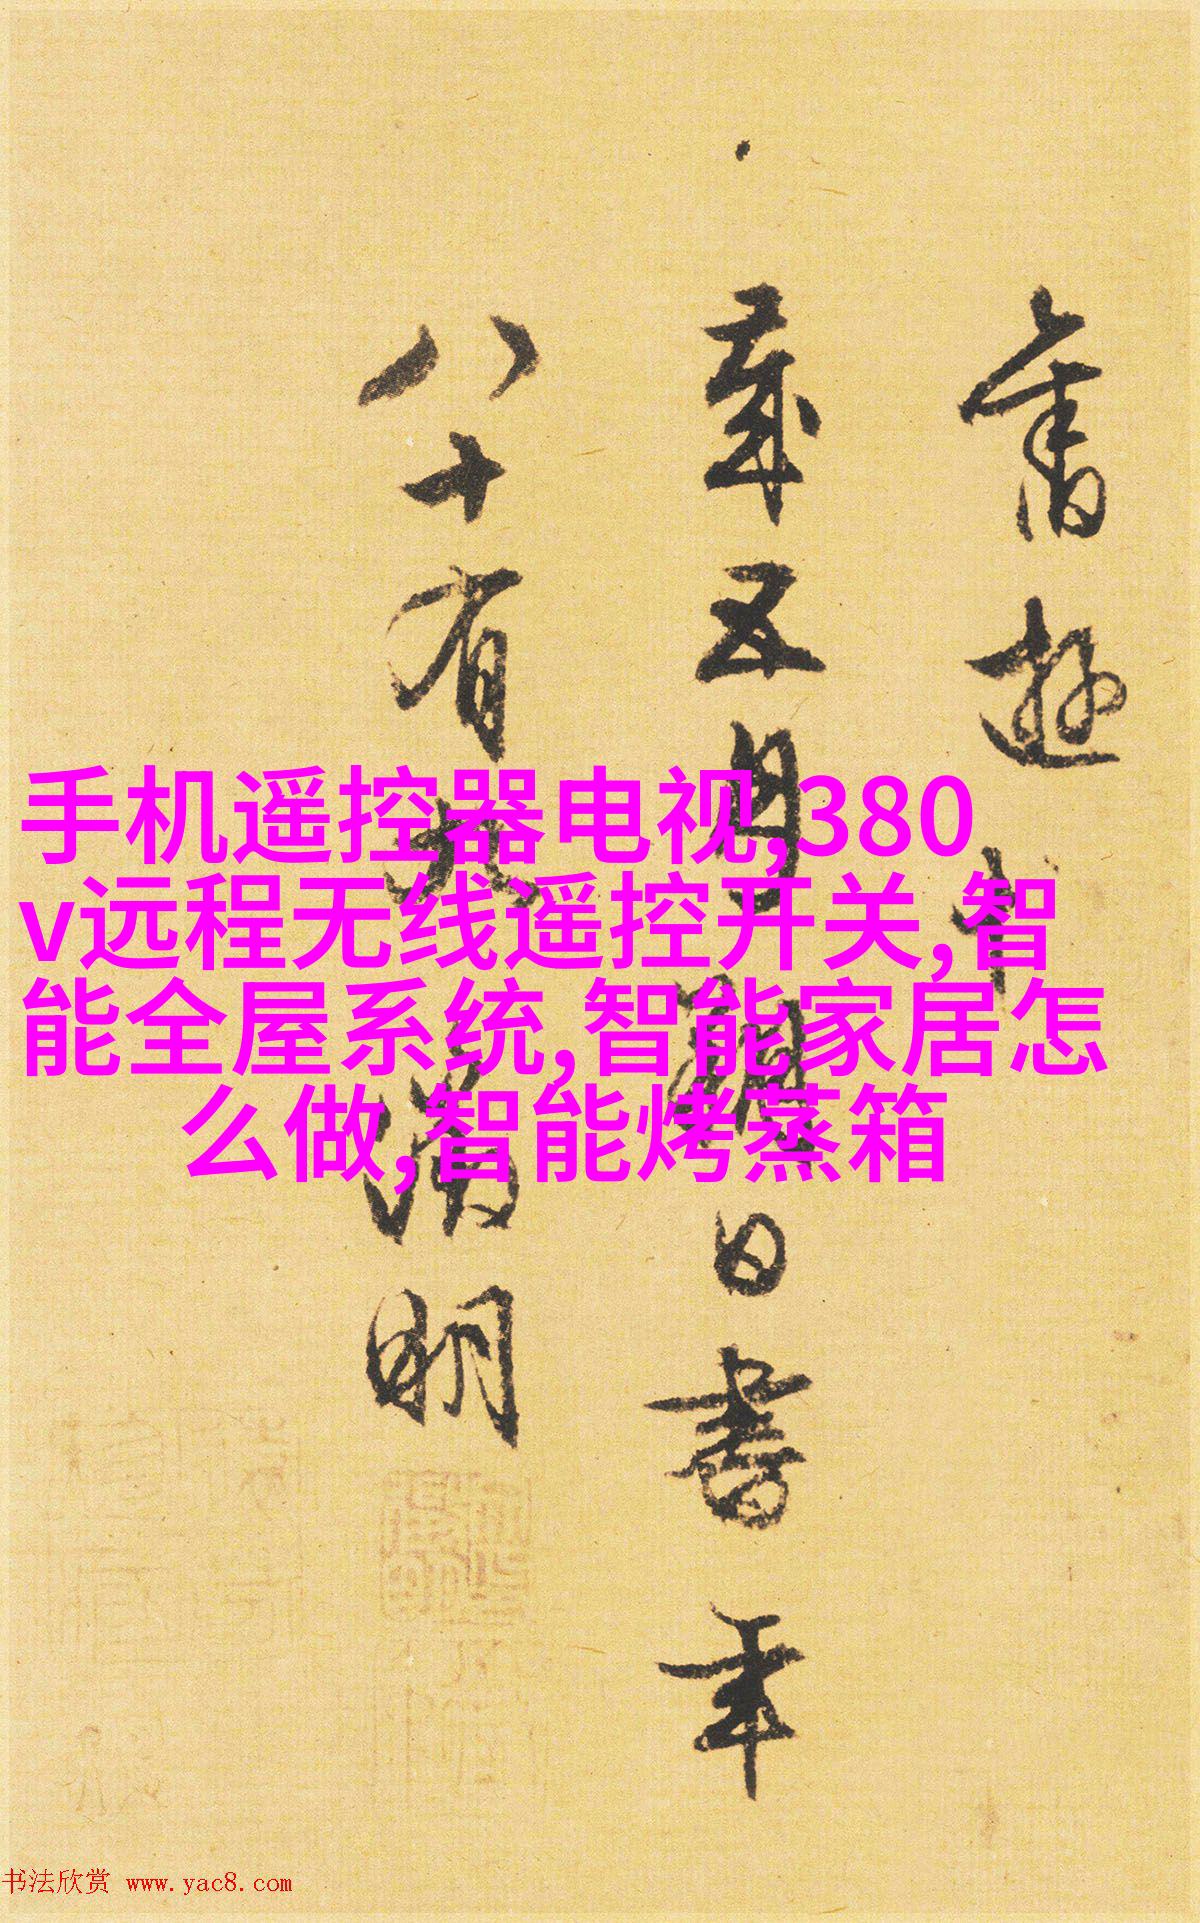 舊遊中
歲五月朔日書年
八十有九徵明
手机遥控器电视,380
v远程无线遥控开关,智
能全屋系统,智能家居怎
么做,智能烤蒸箱
书法欣赏 www.yac8.com